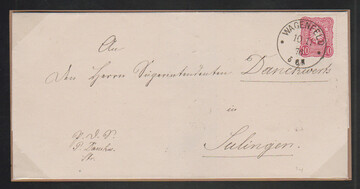 WAGENFELD
10
78
6-7 N
An
Den Herrn Superintendenten Danckwerts
in
Sulingen.